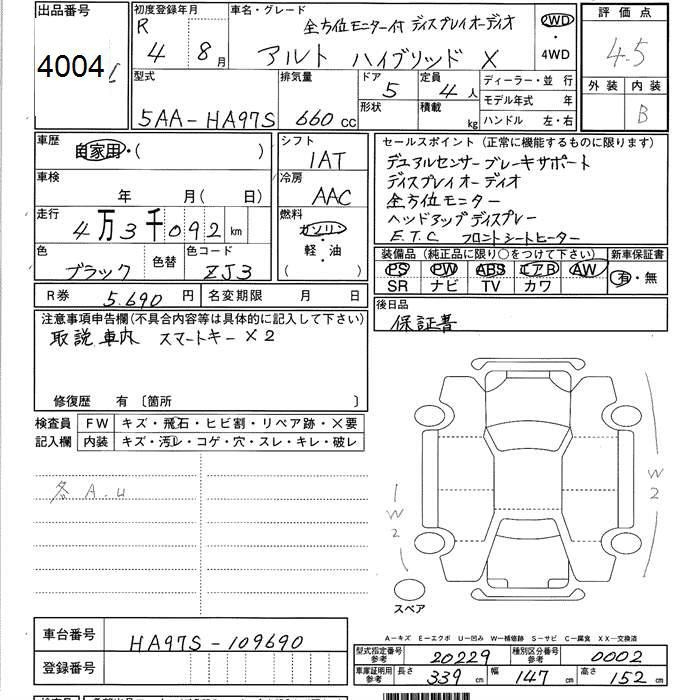 出品番号
4004
初度登録年月
R 4 8月
車名・グレード
全方位モニター付 ディスプレイオーディオ
アルト ハイブリッド X
2WD
・
4WD
評価点
4.5
外装 内装
B
型式
5AA-HA97S
排気量
660 cc
ドア
5
形状
定員
4人
積載
kg
ディーラー・並行
モデル年式 年
ハンドル 左・右
車歴
自家用・( )
車検
年 月(日)
走行
4万3千092km
色
ブラック
色替
色コード
ZJ3
シフト
IAT
冷房
AAC
燃料
ガソリン
・
軽・油
( )
セールスポイント(正常に機能するものに限ります)
デュアルセンサーブレーキサポート
ディスプレイオーディオ
全方位モニター
ヘッドアップディスプレー
E.T.C フロントシートヒーター
装備品(純正品に限り○をつけて下さい)
PS PW ABS エアB AW
SR ナビ TV カワ
新車保証書
有・無
R券 5.690円
名変期限 月 日
後日品
保証書
注意事項申告欄(不具合内容等は具体的に記入して下さい)
取説車内 スマートキー×2
修復歴 有 〔箇所 〕
検査員
記入欄
FW キズ・飛石・ヒビ割・リペア跡・×要
内装 キズ・汚れ・コゲ・穴・スレ・キレ・破レ
各 A.u
W2
W2
スペア
車台番号
HA97S-109690
登録番号
A―キズ E―エクボ U―凹み W―補修跡 S―サビ C―腐食 XX―交換済
型式指定番号
参考
20229
種別区分番号
参考
0002
車庫証明用
参考
長さ 339 cm
幅 147 cm
高さ 152 cm